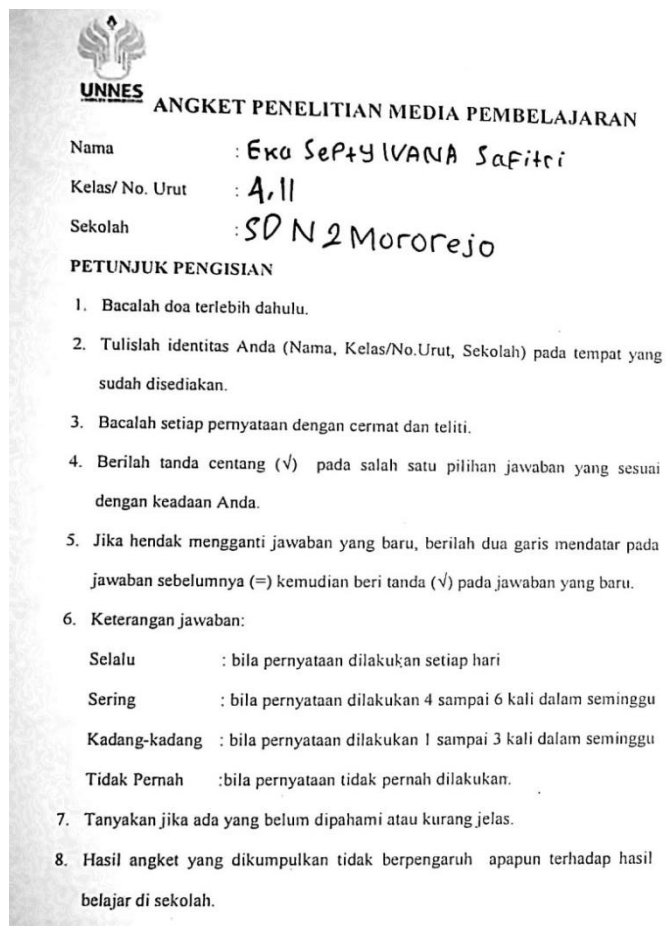 UNNES
ANGKET PENELITIAN MEDIA PEMBELAJARAN
Nama : Eka SePtY IVANA SaFitri
Kelas/ No. Urut : 4,11
Sekolah : SD N 2 Mororejo
PETUNJUK PENGISIAN
1. Bacalah doa terlebih dahulu.
2. Tulislah identitas Anda (Nama, Kelas/No.Urut, Sekolah) pada tempat yang
sudah disediakan.
3. Bacalah setiap pernyataan dengan cermat dan teliti.
4. Berilah tanda centang (√) pada salah satu pilihan jawaban yang sesuai
dengan keadaan Anda.
5. Jika hendak mengganti jawaban yang baru, berilah dua garis mendatar pada
jawaban sebelumnya (=) kemudian beri tanda (√) pada jawaban yang baru.
6. Keterangan jawaban:
Selalu : bila pernyataan dilakukan setiap hari
Sering : bila pernyataan dilakukan 4 sampai 6 kali dalam seminggu
Kadang-kadang : bila pernyataan dilakukan 1 sampai 3 kali dalam seminggu
Tidak Pernah :bila pernyataan tidak pernah dilakukan.
7. Tanyakan jika ada yang belum dipahami atau kurang jelas.
8. Hasil angket yang dikumpulkan tidak berpengaruh apapun terhadap hasil
belajar di sekolah.